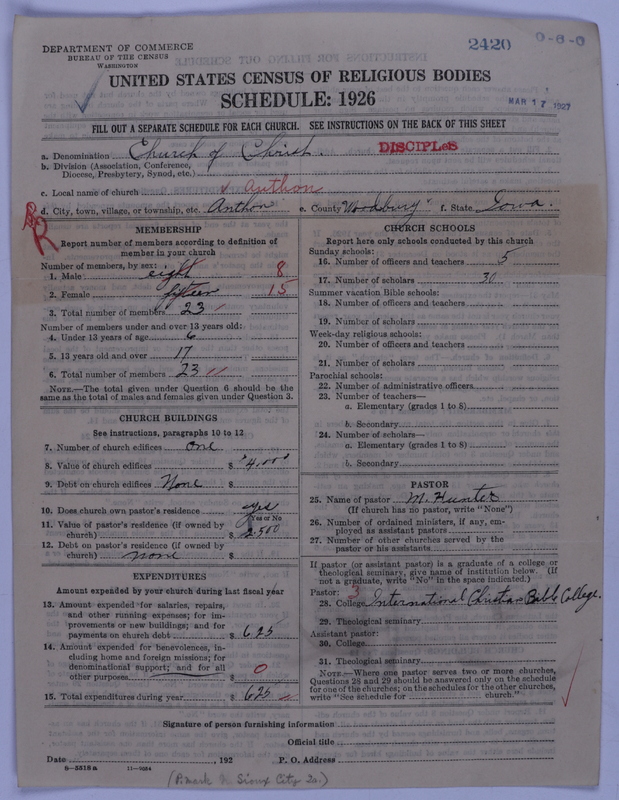 DEPARTMENT OF COMMERCE
BUREAU OF THE CENSUS
WASHINGTON
2420
0-6-0
UNITED STATES CENSUS OF RELIGIOUS BODIES
SCHEDULE: 1926
MAR 17 1927
FILL OUT A SEPARATE SCHEDULE FOR EACH CHURCH. SEE INSTRUCTIONS ON THE BACK OF THIS SHEET
a. Denomination Church of Christ. DISCIPLES
b. Division (Association, Conference,
Diocese, Presbytery, Synod, etc.)
c. Local name of church Anthon
d. City, town, village, or township, etc. Anthon e. County Woodbury f. State Iowa.
MEMBERSHIP
Report number of members according to definition of
member in your church
Number of members, by sex:
1. Male eight 8
2. Female fifteen 15
3. Total number of members 23
Number of members under and over 13 years old:
4. Under 13 years of age 6
5. 13 years old and over 17
6. Total number of members 23
NOTE.—The total given under Question 6 should be the
same as the total of males and females given under Question 3.
CHURCH BUILDINGS
See instructions, paragraphs 10 to 12
7. Number of church edifices One
8. Value of church edifices $ 4,000
9. Debt on church edifices None $
10. Does church own pastor's residence yes
(Yes or No)
11. Value of pastor's residence (if owned by
church) $ 2.500
12. Debt on pastor's residence (if owned by
church) none $
EXPENDITURES
Amount expended by your church during last fiscal year
13. Amount expended for salaries, repairs,
and other running expenses; for im-
provements or new buildings; and for
payments on church debt $ 625
14. Amount expended for benevolences, in-
cluding home and foreign missions; for
denominational support; and for all
other purposes $ 0
15. Total expenditures during year $ 625
CHURCH SCHOOLS
Report here only schools conducted by this church
Sunday schools:
16. Number of officers and teachers 5
17. Number of scholars 30
Summer vacation Bible schools:
18. Number of officers and teachers
19. Number of scholars
Week-day religious schools:
20. Number of officers and teachers
21. Number of scholars
Parochial schools:
22. Number of administrative officers
23. Number of teachers—
a. Elementary (grades 1 to 8)
b. Secondary
24. Number of scholars—
a. Elementary (grades 1 to 8)
b. Secondary
PASTOR
25. Name of pastor M. Hunter
(If church has no pastor, write "None")
26. Number of ordained ministers, if any, em-
ployed as assistant pastors
27. Number of other churches served by the
pastor or his assistants
If pastor (or assistant pastor) is a graduate of a college or
theological seminary, give name of institution below. (If
not a graduate, write "No" in the space indicated.)
Pastor: 3
28. College International Christian Bible College.
29. Theological seminary
Assistant pastor:
30. College
31. Theological seminary
NOTE.—Where one pastor serves two or more churches,
Questions 28 and 29 should be answered only on the schedule
for one of the churches; on the schedules for the other churches,
write "See schedule for church."
Signature of person furnishing information
Official title
Date , 192 P. O. Address
8-5518a 11-9034
Sioux City